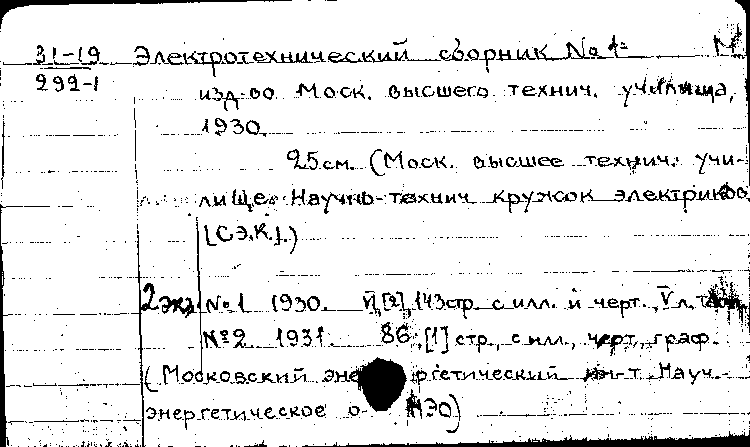 31-19 Электротехнический сборник № 1- М.
292-1 изд-во Моск. высшего технич. училища,
1930.
25 см. (Моск. высшее технич. учи-
лище. Научно-технич кружок электриков
[СЭ.К.].)
2 экз. №1 1930. [2], 143 стр. с илл. и черт., V л.
№2 1931. 86, [1] стр., с илл., черт., граф.
(Московский энергетический ин-т. Науч.-
энергетическое о- НЭО)